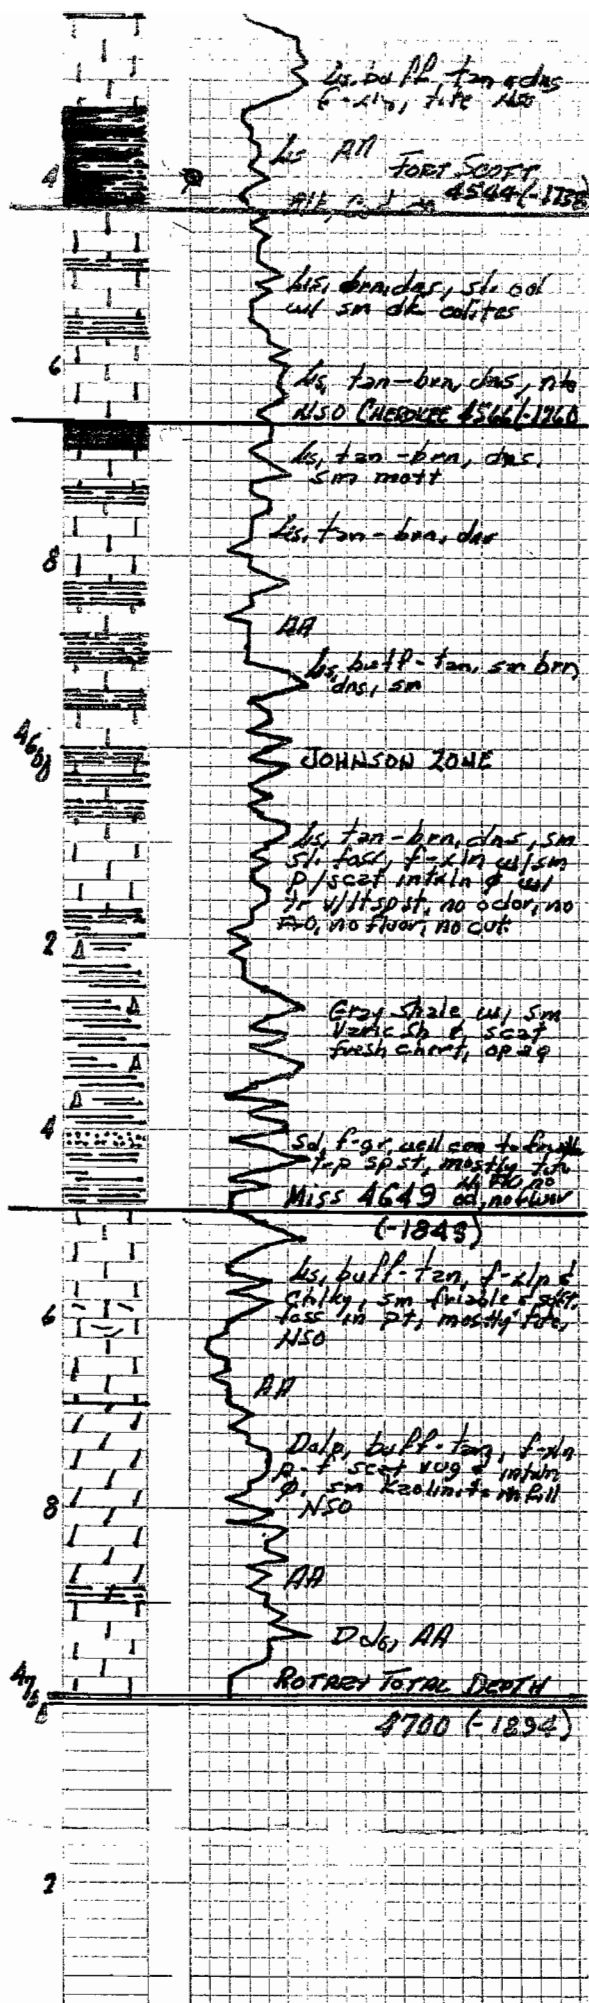 Ls, buff, tan & dns
f-xln, tite NSO
Ls AA
FORT SCOTT
4
4544 (-1738
Ls, brn, dns, sl. ool
w/ sm dk oolites
6
Ls, tan-brn, dns, tite
NSO CHEROKEE 4566 (-1760
Ls, tan-brn, dns,
sm mott
Ls, tan-brn, dns
8
AA
Ls, buff-tan, sm brn,
dns, sm
4600
JOHNSON ZONE
Ls, tan-brn, dns, sm
sl. foss, f-xln w/ sm
p/scat intxln ø w/
tr v/lt sp st, no odor, no
FO, no fluor, no cut
2
Gray shale, w/ sm
varic sh & scat
fresh chert, opaq
4
Sd, f-gr, well cem to friable
t-p sp st, mostly tite
N FO, no
Miss 4649 od, no fluor
(-1843)
Ls, buff-tan, f-xln &
chlky, sm friable & soft,
6
foss in pt, mostly tite,
NSO
AA
Dolo, buff-tan, f-xln
p-f scat vug & intxln
ø, sm kaolinite infill
8
NSO
AA
Dolo, AA
4700
ROTARY TOTAL DEPTH
4700 (-1894)
2